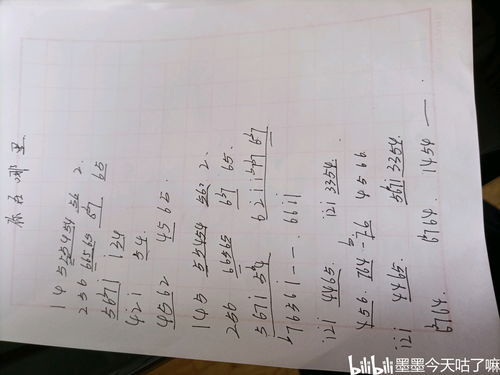 你在哪里
1 4 5 5 5 4 5 4 5 6 2.
2 5 6 6 6 5 6 5 6 7 6 5
5 6 7 i i 3 4
4 2 i 5 4.
4 5 i 2 4 5 6 5.
1 4 5 5 5 4 5 4 5 6· 2.
2 5 6 6 6 5 6 5 6 7 6 5.
5 6 7 i 5 4
i 7 6 5 6 i - - . 6 6 i i
i 2 i 4 4 6 5. i 2 i 3 3 5 4.
4 5 6 . 7 6 4 - 7 6 4 5 6 6
i 2 i 4 4 6 5. 5 6 7 i 3 3 5 4.
6 7 6 4. 6 7 6 4. 1 4 5 4 —
bilibili 墨墨今天咕了嘛